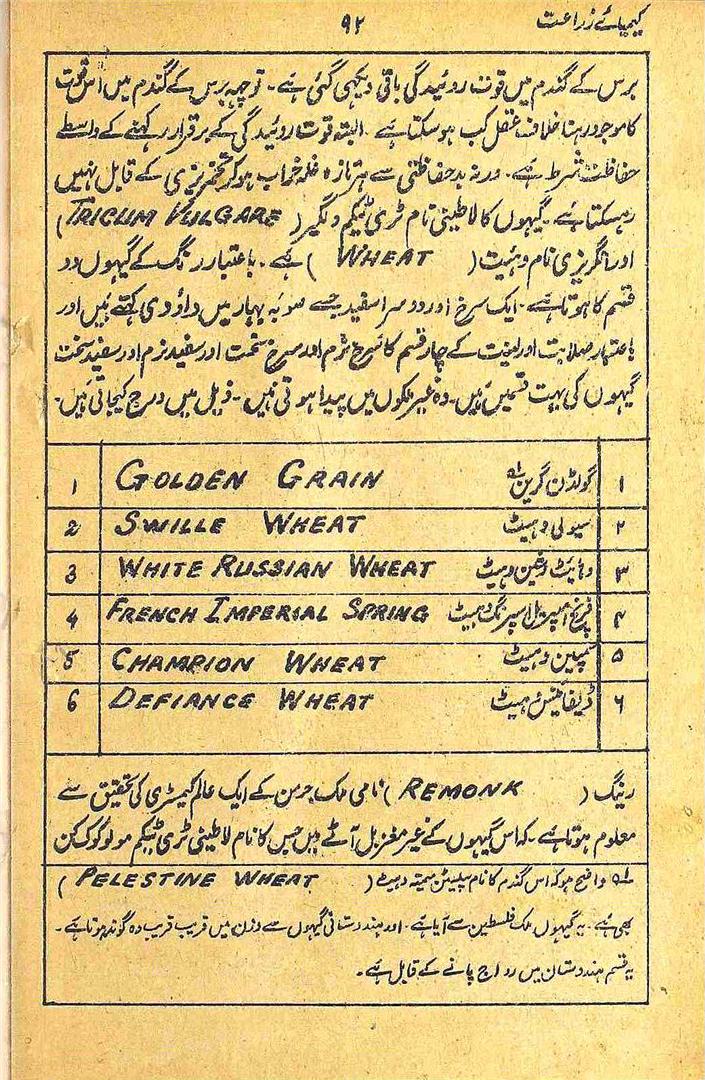 کیمیائے زراعت ۹۲
برس کے گندم میں قوت روئیدگی باقی دیکھی گئی ہے۔ توچہہ برس کے گندم میں اس قوت
کا موجود رہنا خلاف عقل کب ہوسکتا ہے۔ البتہ قوت روئیدگی کے برقرار رکہنے کے واسطے
حفاظت شرط ہے۔ ورنہ بدحفاظتی سے ہر تازہ غلہ خراب ہوکر تخمریزی کے قابل نہیں
رہسکتا ہے۔ گیہوں کا لاطینی نام ٹری ٹیکم ولگیر (TRICUM VULGARE)
اور انگریزی نام وہیٹ (WHEAT) ہے۔ باعتبار رنگ کے گیہوں دو
قسم کا ہوتا ہے۔ ایک سرخ اور دوسرا سفید جسے صوبہ بہار میں داؤدی کہتے ہیں اور
باعتبار صلابت اور لینت کے چار قسم کا سرخ نرم اور سرخ سخت اور سفید نرم اور سفید سخت
گیہوں کی بہت قسمیں ہیں۔ وہ غیر ملکوں میں پیدا ہوتی ہیں۔ ذیل میں درج کیجاتی ہیں۔
۱ گولڈن گرین لہ GOLDEN GRAIN 1
۲ سیولی وہیٹ SWILLE WHEAT 2
۳ وہائیٹ رشین وہیٹ WHITE RUSSIAN WHEAT 3
۴ فرنچ امپیریل اسپرنگ وہیٹ FRENCH IMPERIAL SPRING 4
۵ چمپین وہیٹ CHAMPION WHEAT 5
۶ ڈیفائینس وہیٹ DEFIANCE WHEAT 6
(REMONK) نامی ملک جرمن کے ایک عالم کیمسٹری کی تحقیق سے
معلوم ہوتا ہے۔ کہ اس گیہوں کے غیر مغربل آٹے میں جس کا نام لاطینی ٹری ٹیکم مولوکوکن
لہ واضح ہو کہ اس گندم کا نام وہیٹ (PELESTINE WHEAT)
بھی ہے۔ یہ گیہوں ملک فلسطین سے آیا ہے۔ اور ہندوستانی گیہوں سے وزن میں قریب قریب دہ گونہ ہوتا ہے۔
یہ قسم ہندوستان میں رواج پانے کے قابل ہے۔